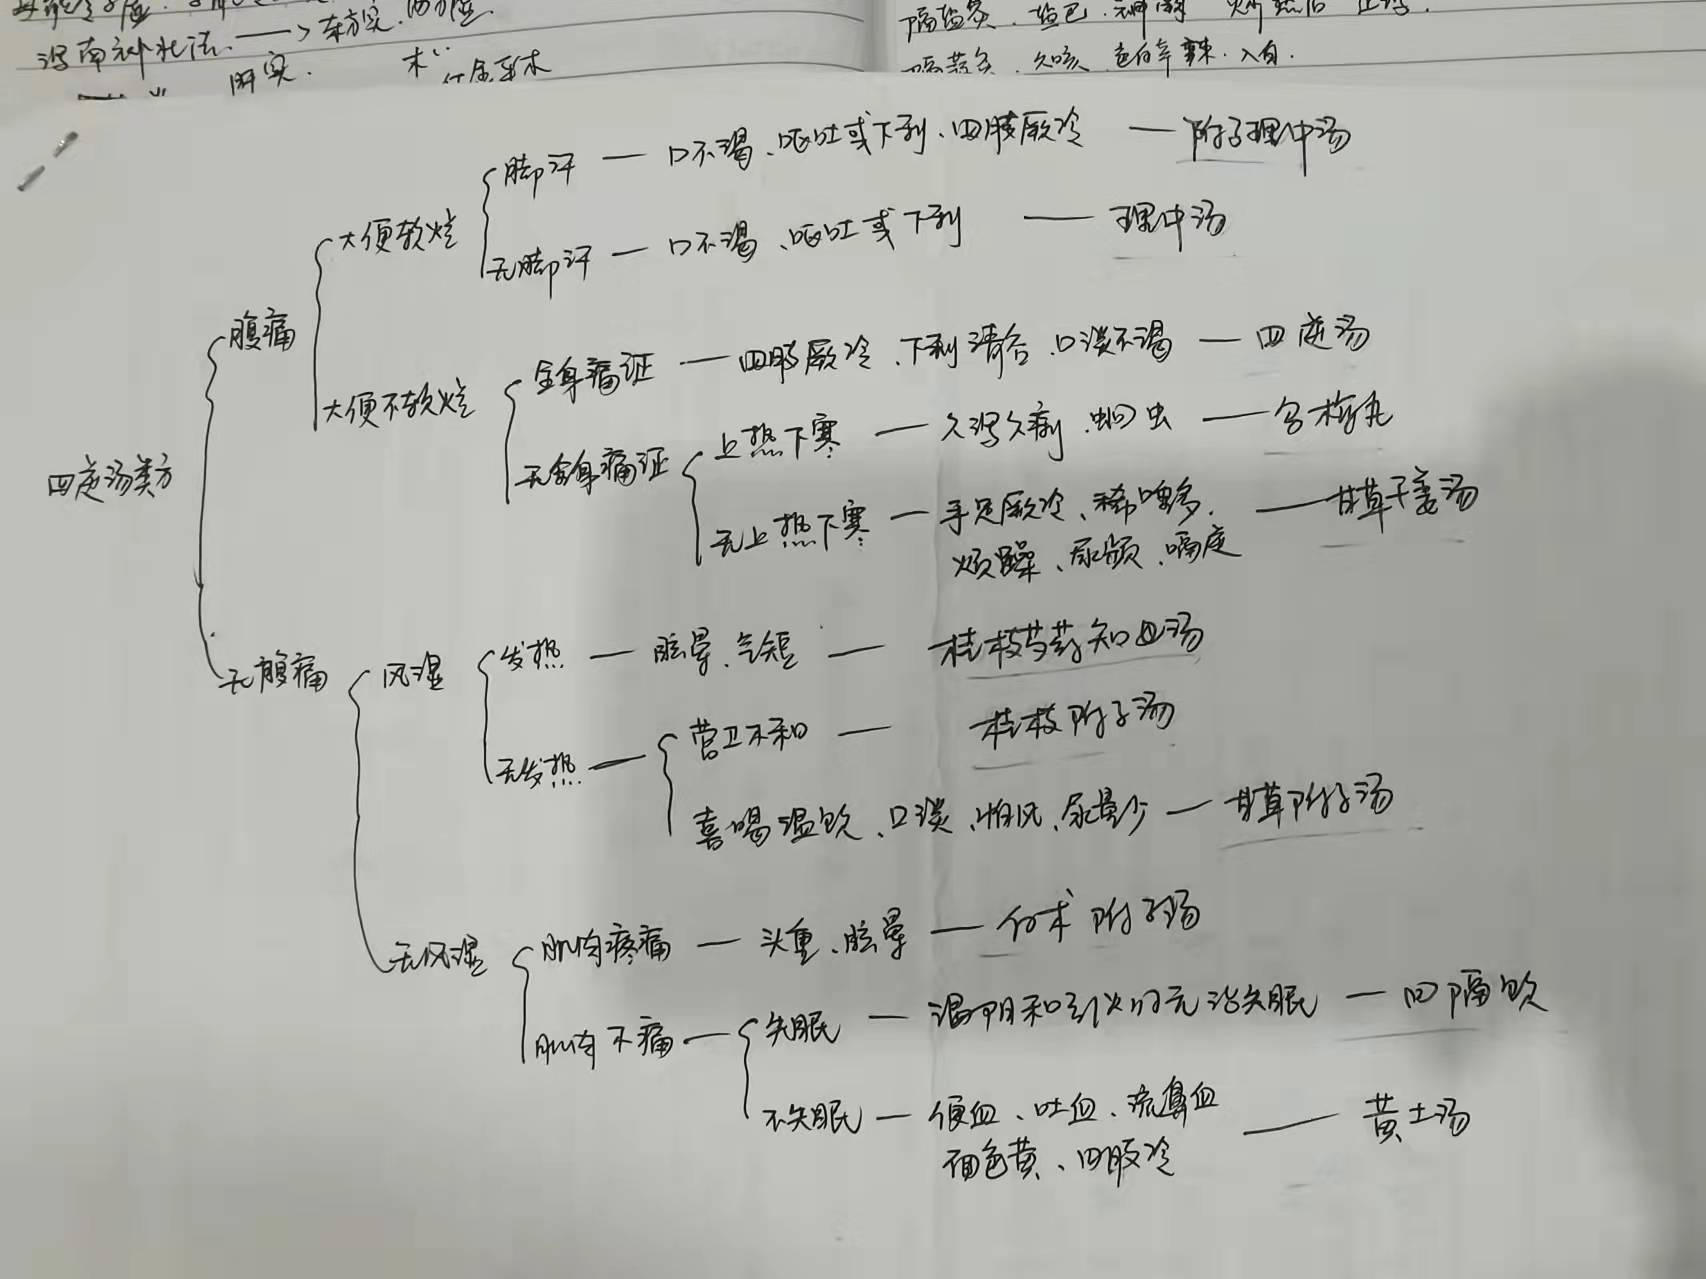 泻南补北法 —> 东方实
隔盐灸、盐巴、神阙 炒热后
隔蒜灸、久咳、色白辛辣、入自.
脚汗 — 口不渴、呕吐或下利、四肢厥冷 — 附子理中汤
大便软烂
无脚汗 — 口不渴、呕吐或下利 — 理中汤
腹痛
全身痛证 — 四肢厥冷、下利清谷、口淡不渴 — 四逆汤
大便不软烂
上热下寒 — 久泻久痢、蛔虫 — 乌梅丸
无全身痛证
四逆汤类方
无上热下寒 — 手足厥冷、稀唾多、 — 甘草干姜汤
烦躁、尿频、嗝逆
发热 — 眩晕、气短 — 桂枝芍药知母汤
无腹痛
风湿
营卫不和 — 桂枝附子汤
无发热 —
喜喝温饮、口淡、怕风、尿量少 — 甘草附子汤
肌肉疼痛 — 头重、眩晕 — 白术附子汤
无风湿
失眠 — 温阳和引火归元治失眠 — 回阳饮
肌肉不痛 —
不失眠 — 便血、吐血、流鼻血 — 黄土汤
面色黄、四肢冷